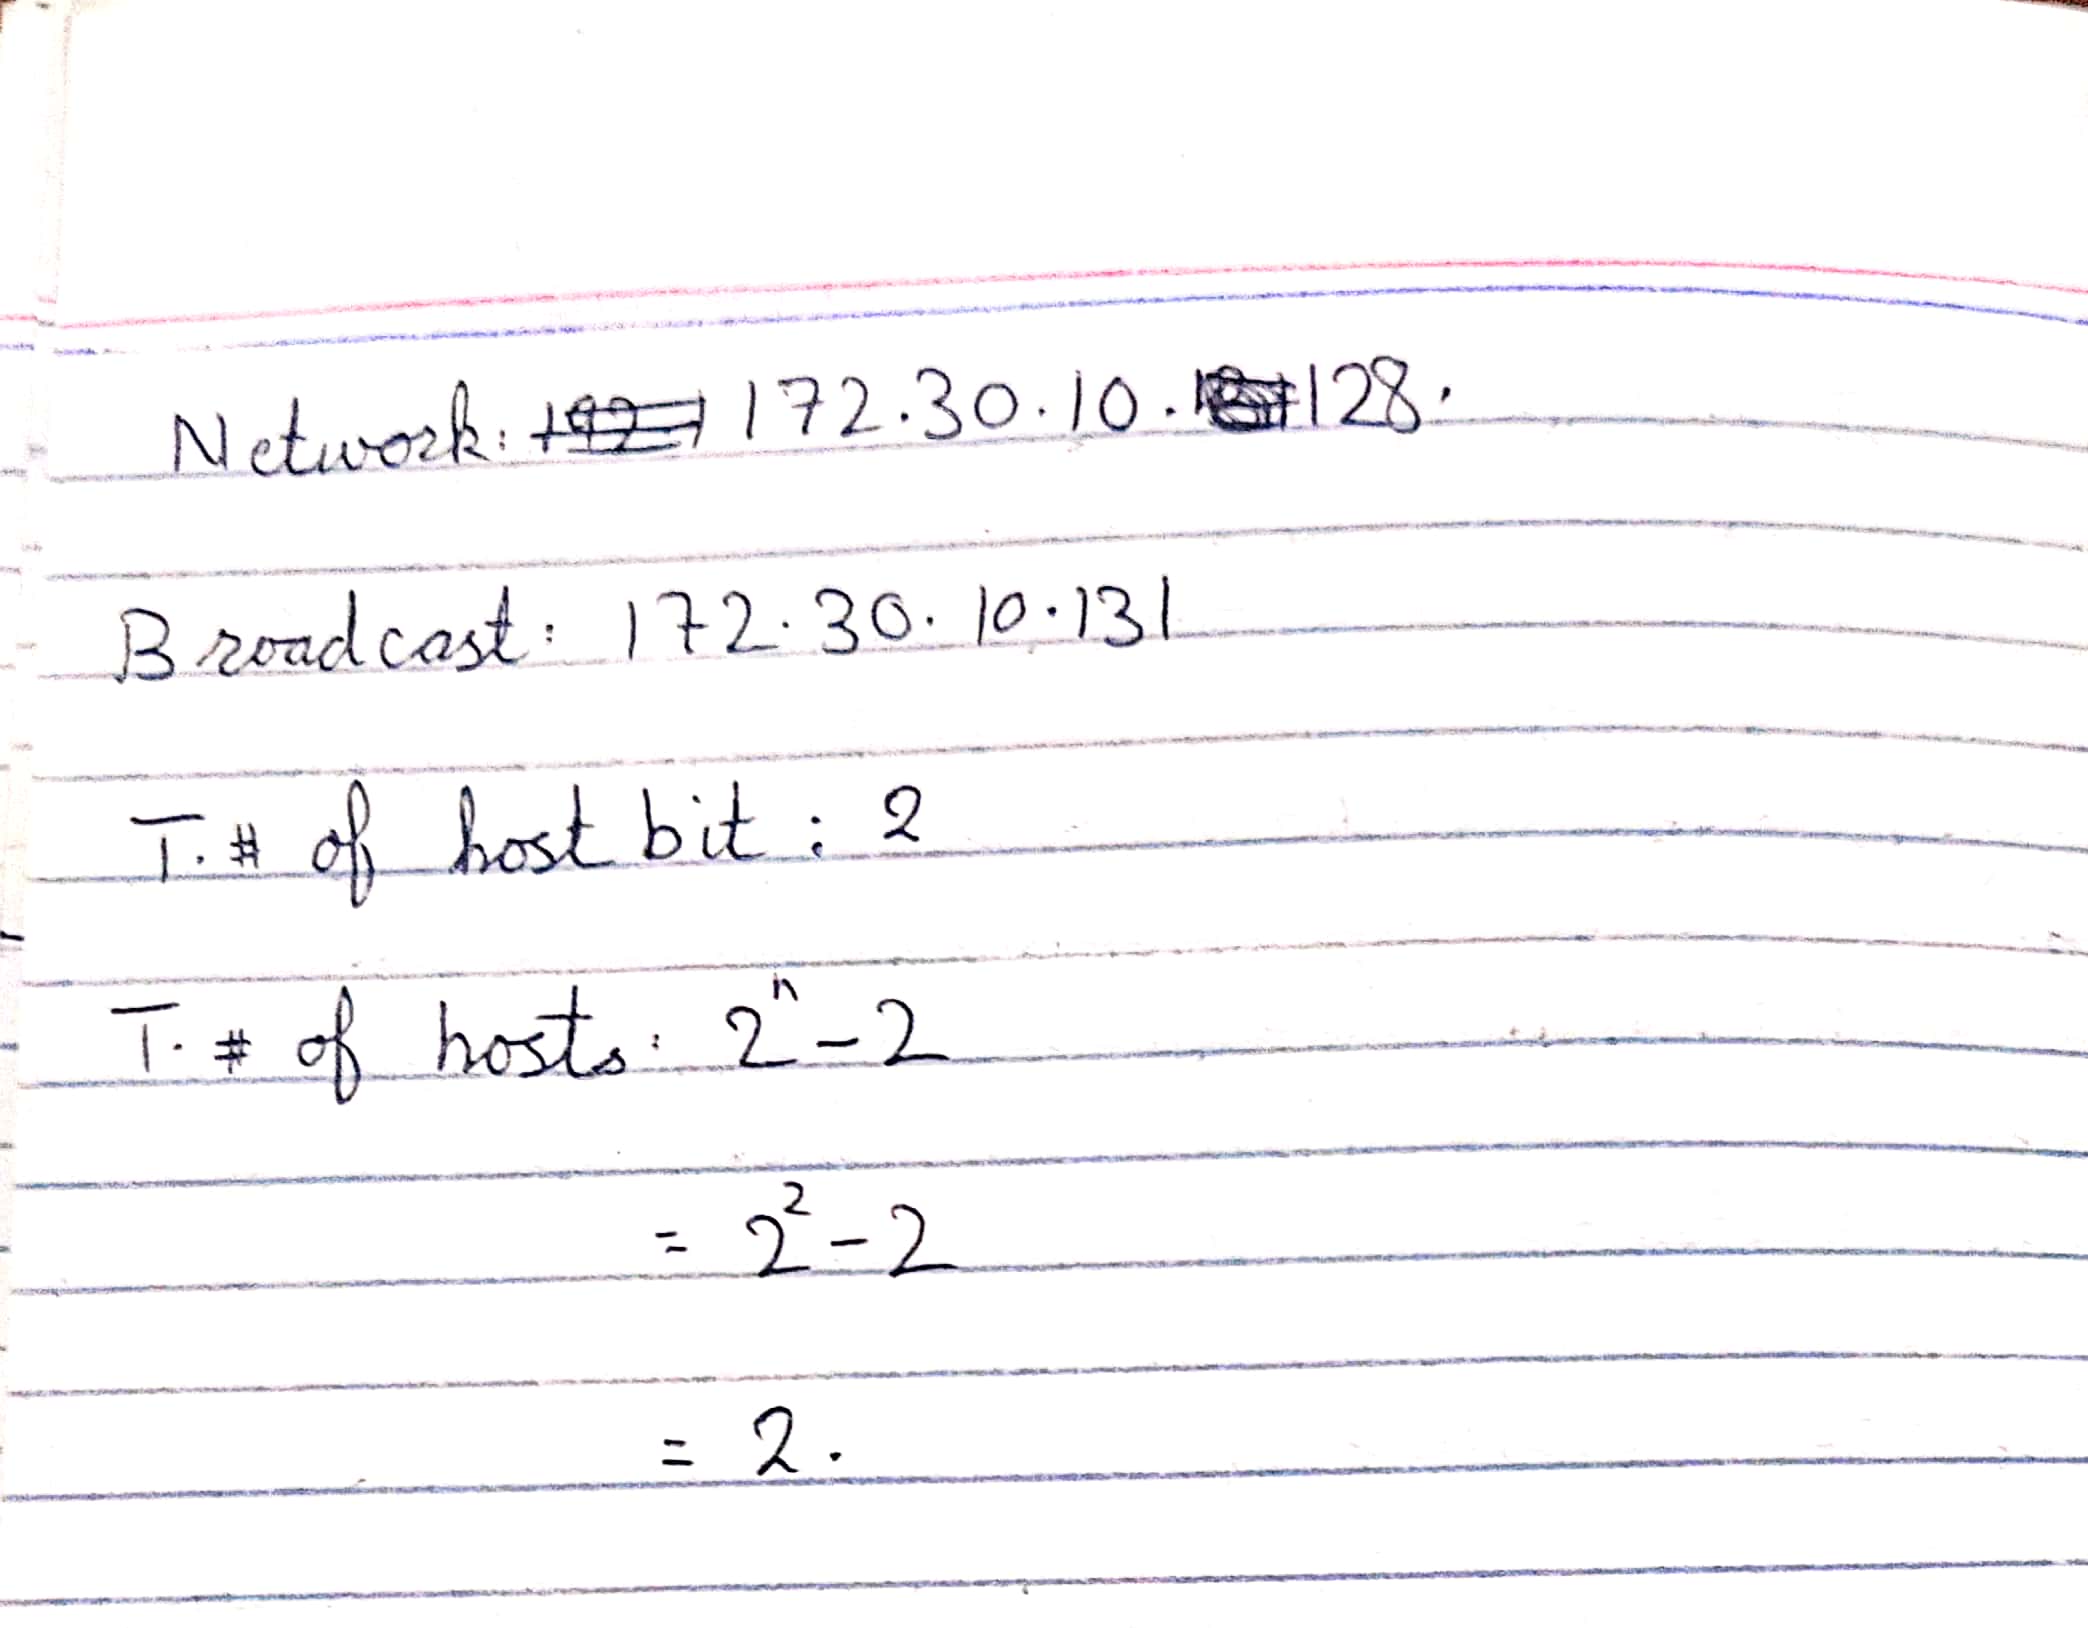 Network: 172.30.10.128.
Broadcast: 172.30.10.131
T.# of host bit: 2
T.# of hosts: 2ⁿ-2
= 2²-2
= 2.